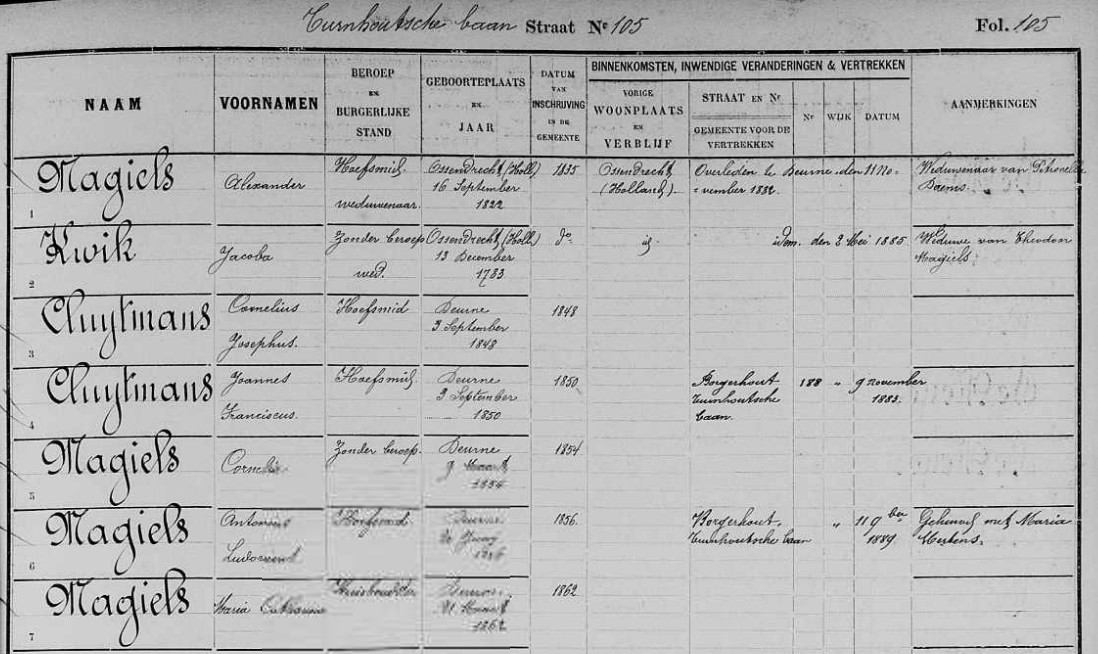 Turnhoutsche baan Straat Nr 105
Fol. 105
NAAM
VOORNAMEN
BEROEP
EN
BURGERLIJKE
STAND
GEBOORTEPLAATS
EN
JAAR
DATUM
VAN
INSCHRIJVING
IN DE
GEMEENTE
BINNENKOMSTEN, INWENDIGE VERANDERINGEN & VERTREKKEN
VORIGE
WOONPLAATS
EN
VERBLIJF
STRAAT EN Nr
GEMEENTE VOOR DE
VERTREKKEN
Nr
WIJK
DATUM
AANMERKINGEN
Magiels
1
Alexander
Hoefsmid.
weduwenaar.
Ossendrecht (Holl.)
16 September
1822
1835
Ossendrecht
(Holland).
Overleden te Deurne den 11 No-
vember 1882.
Weduwenaar van
Kwik
2
Jacoba
Zonder beroep
wed.
Ossendrecht (Holl.)
13 December
1783
do
id
idem. den 2 Mei 1885.
Weduwe van Theodon
Magiels.
Cluytmans
3
Cornelius
Josephus.
Hoefsmid
Deurne
3 September
1848
1848
Cluytmans
4
Joannes
Franciscus.
Hoefsmid.
Deurne
3 September
1850
1850
Borgerhout
Turnhoutsche
baan.
188
"
9 november
1883.
Magiels
5
Cornelia
Zonder beroep.
Deurne
9 Maart
1854
1854
Magiels
6
Antonius
Hoefsmid
Deurne
1856.
Borgerhout.
Turnhoutsche baan
"
11 9ber
1889
Gehuwd met Maria
Mertens.
Magiels
7
Maria Catharina
Deurne
21 Maart
1862
1862